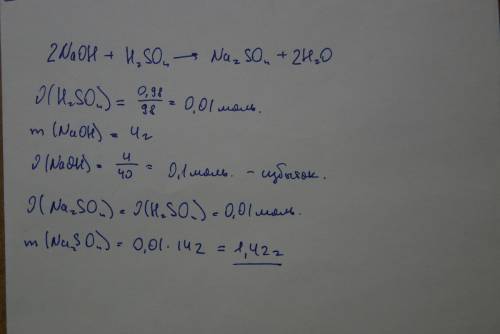 2NaOH + H₂SO₄ → Na₂SO₄ + 2H₂O
ϑ(H₂SO₄) = 0,98/98 = 0,01 моль.
m(NaOH) = 4г
ϑ(NaOH) = 4/40 = 0,1 моль. – избыток.
ϑ(Na₂SO₄) = ϑ(H₂SO₄) = 0,01 моль.
m(Na₂SO₄) = 0,01 · 142 = 1,42г